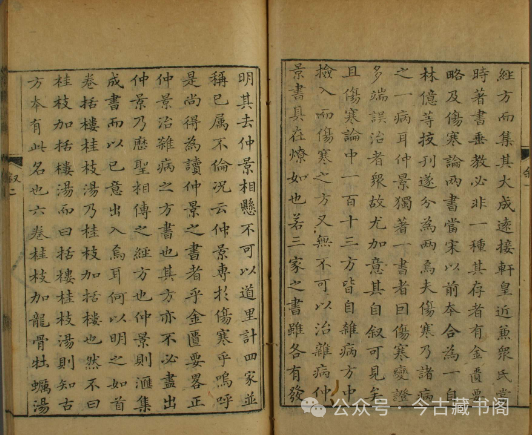 經方而集其大成遠接軒皇近兼衆氏當
時著書垂教必非一種其存者有金匱要
略及傷寒論兩書當宋以前本合為一自
林億等挍刋遂分為兩焉夫傷寒乃諸病
之一病耳仲景獨著一書者因傷寒變證
多端誤治者衆故尤加意其自叙可見矣
且傷寒論中一百十三方皆自雜病方中
撿入而傷寒之方又無不可以治雜病仲
景書具在燎如也若三家之書雖各有發
明其去仲景相懸不可以道里計四家並
稱已属不倫況云仲景專於傷寒乎嗚呼
是尚得為讀仲景之書者乎金匱要畧正
仲景治雜病之方書也其方亦不必盡出
仲景乃歴聖相傳之經方也仲景則滙集
成書而以已意出入焉耳何以明之如首
卷括樓桂枝湯乃桂枝加括樓也然不曰
桂枝加括樓湯而曰括樓桂枝湯則知古
方本有此名也六卷桂枝加龍骨牡蠣湯
叙二
公众号·今古藏书阁